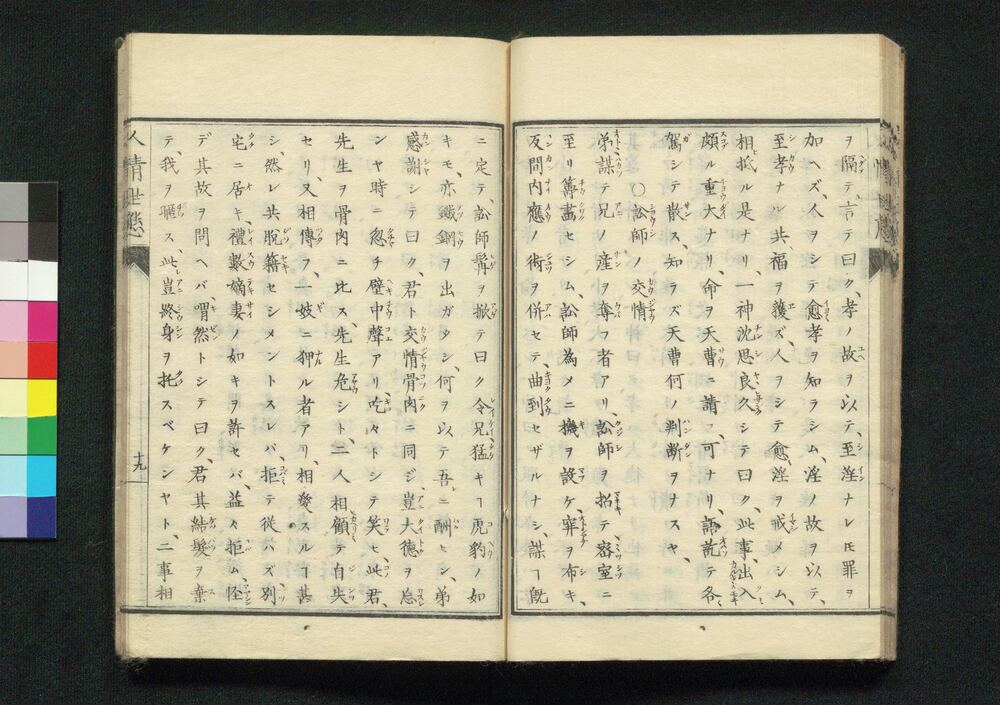 ヲ隔テ、言テ曰ク、孝ノ故ヲ以テ、至淫ナレ𪜈罪ヲ
加ヘズ、人ヲシテ愈孝ヲ知ラシム、淫ノ故ヲ以テ、
至孝ナル共、福ヲ獲ズ、人ヲシテ愈淫ヲ戒メシム、
相抵ル是ナリ、一神沈思良久シテ曰ク、此事、出入
頗ル重大ナリ、命ヲ天曹ニ請、可ナリ、語訖テ各
駕シテ散ス、知ラズ天曹何ノ判断ヲナスヤ、
○訟師ノ交情
弟謀テ兄ノ産ヲ奪フ者アリ、訟師ヲ招テ、密室ニ
至リ籌畫セシム、訟師為メニ機ヲ設ケ、罪ヲ布キ、
反間内應ノ術ヲ併セテ、曲到セザルナシ、謀ヿ既
ニ定テ、訟師髯ヲ掀テ曰ク令兄猛キヿ虎豹ノ如
キモ、亦鐵網ヲ出ガタシ、何ヲ以テ吾ニ酬ヒン、弟
感謝シテ曰ク、君ト交情骨肉ニ同ジ豈大徳ヲ忘
ンヤ時ニ忽チ壁中聲アリ吃々トシテ笑ヒ、此君、
先生ヲ骨肉ニ比ス、先生危シト、二人相顧テ自失
セリ、又相傳フ、一妓ニ狎ル者アリ、相愛スルヿ甚
シ、然レ共脱籍セシメントスレバ、拒テ從ハズ別
宅ニ居キ、禮數嫡妻ノ如キヲ許セバ、益々拒ム、怪
デ其故ヲ問ヘバ、喟然トシテ曰ク、君其結髪ヲ棄
テ、我ヲ暱ス、此豈終身ヲ托スベケンヤト、二事相
人情世態
十九